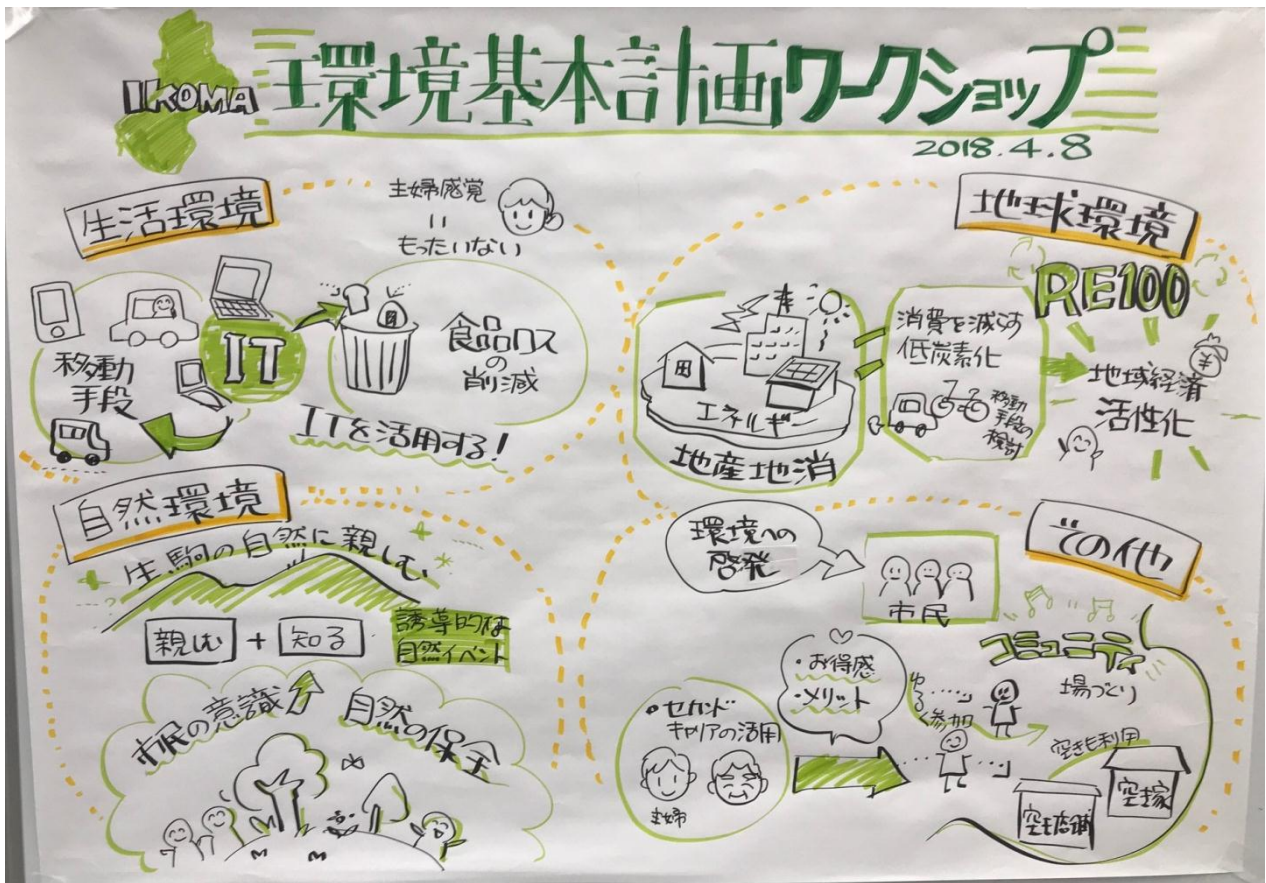 IKOMA
環境基本計画ワークショップ
2018.4.8
生活環境
主婦感覚
=
もったいない
移動
手段
IT
食品ロス
の
削減
ITを活用する!
地球環境
RE100
エネルギー
地産地消
=
消費を減らす
低炭素化
移動
手段の
検討
¥
地域経済
活性化
自然環境
生駒の自然に親しむ
親しむ + 知る
誘導的な
自然イベント
市民の意識
自然の保全
その他
環境への
啓発
市民
コミュニティ
場づくり
・お得感
・メリット
・セカンド
キャリアの活用
主婦
ゆるく参加
空きも利用
空き家
空き店舗